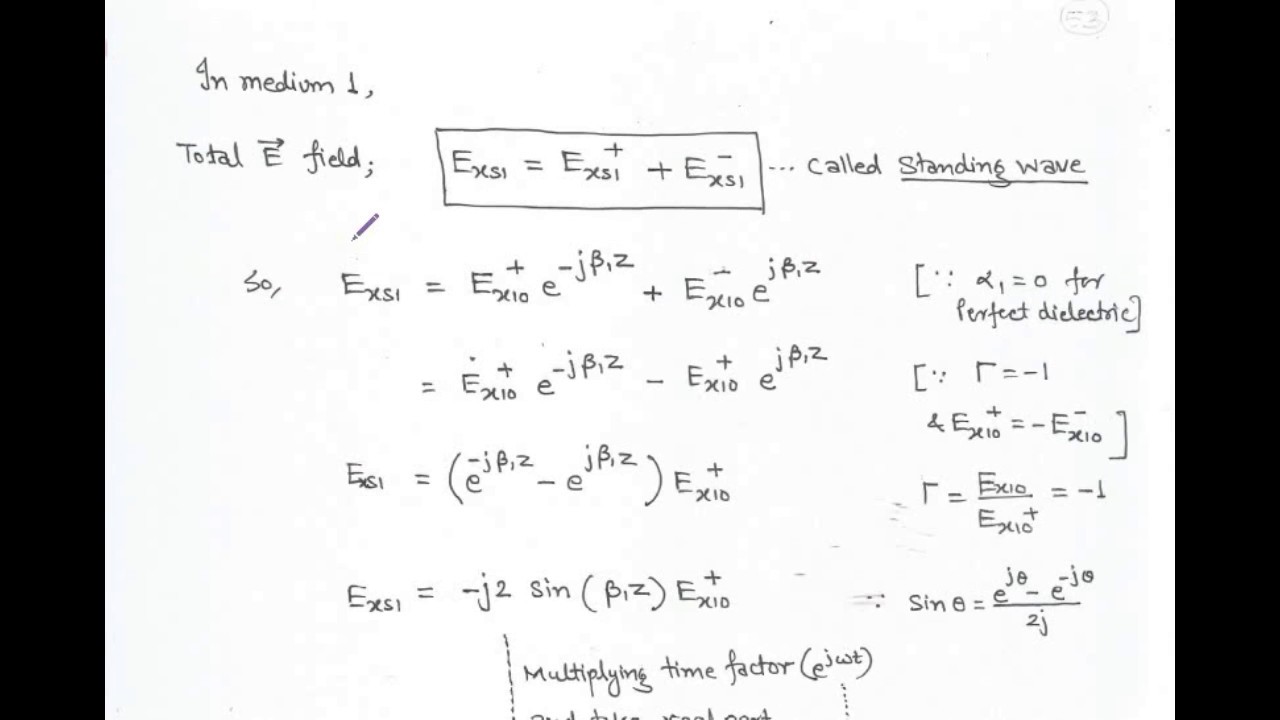 In medium 1,
Total E⃗ field; Exs1 = Exs1⁺ + Exs1⁻ ... called Standing wave
So, Exs1 = Ex10⁺ e^(-jβ₁z) + Ex10⁻ e^(jβ₁z) [∵ α₁ = 0 for
Perfect dielectric]
= Ex10⁺ e^(-jβ₁z) - Ex10⁺ e^(jβ₁z) [∵ Γ = -1
& Ex10⁺ = - Ex10⁻]
Exs1 = (e^(-jβ₁z) - e^(jβ₁z)) Ex10⁺
Γ = Ex10 / Ex10⁺ = -1
Exs1 = -j2 Sin (β₁z) Ex10⁺ ∵ Sin θ = (e^(jθ) - e^(-jθ)) / 2j
Multiplying time factor (e^(jωt))